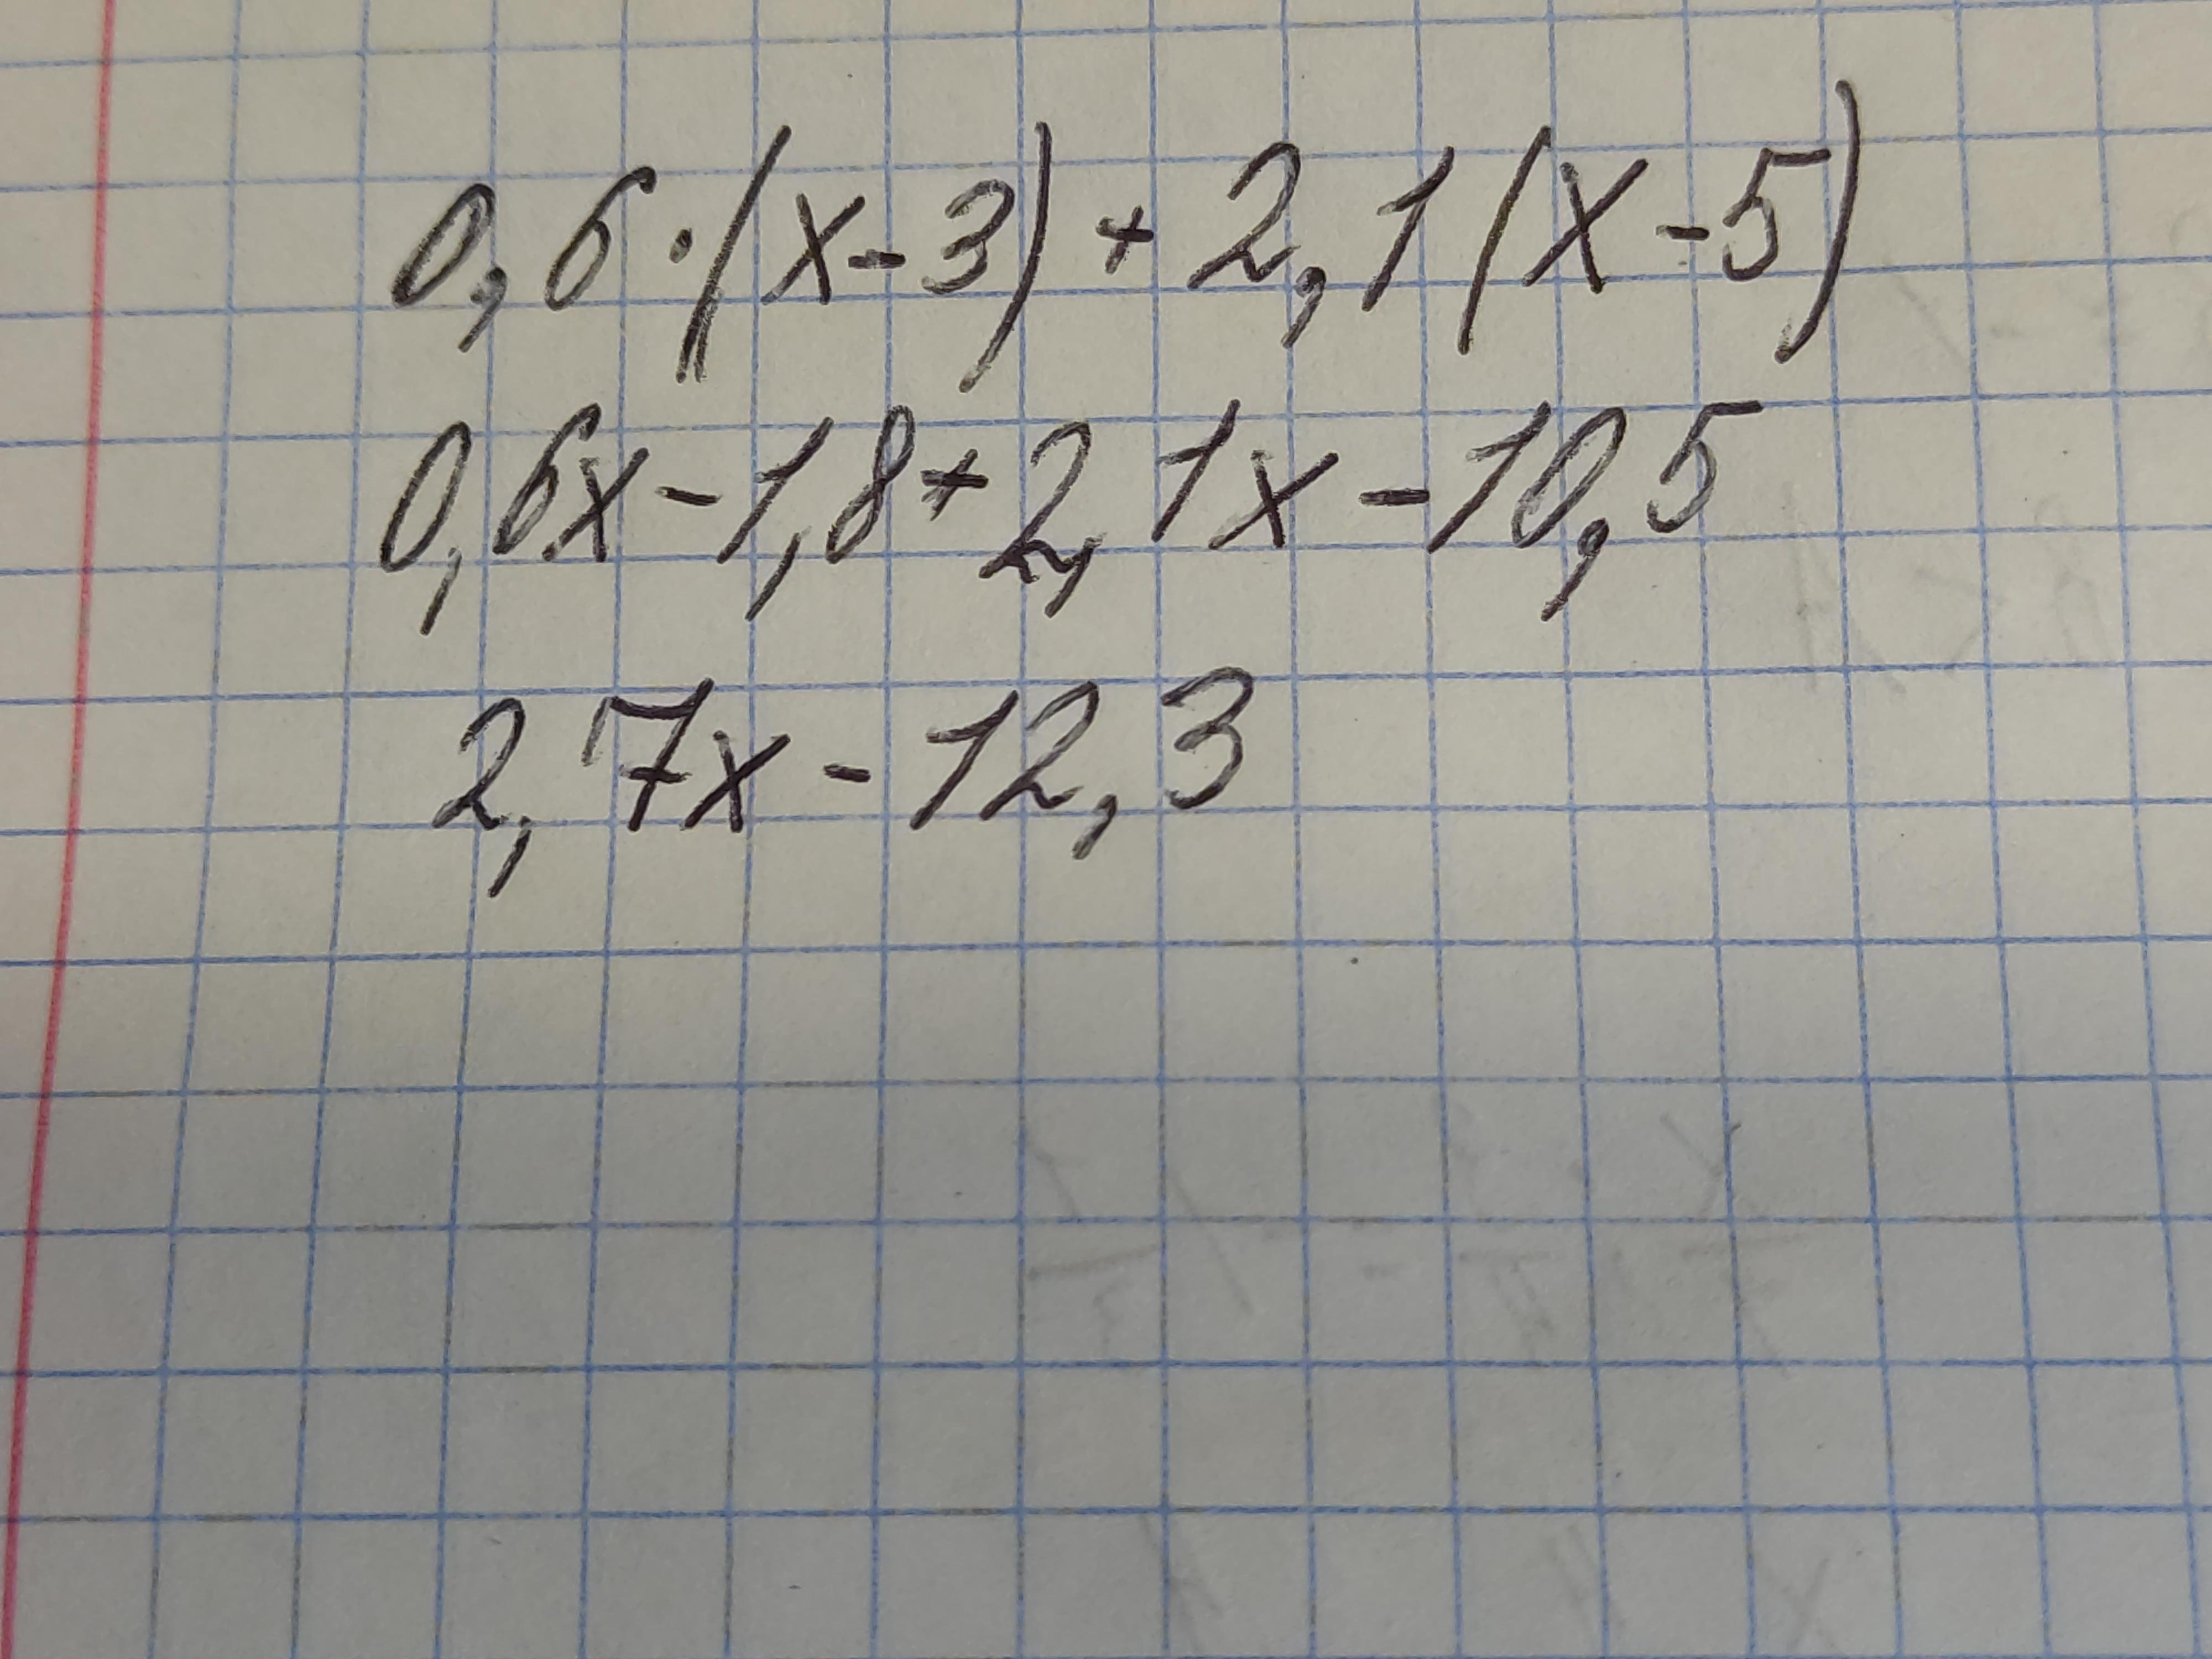 0,6·(x-3)+2,1(x-5)
0,6x-1,8+2,1x-10,5
2,7x-12,3